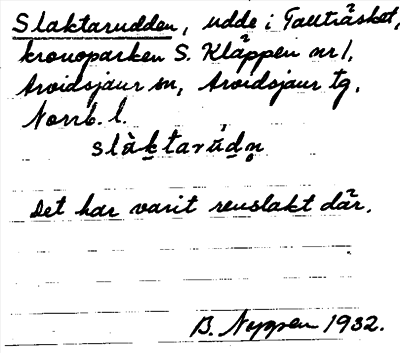 Slaktarudden, udde i Tallträsket,
kronoparken S. Kläppen nr 1,
Arvidsjaur sn, Arvidsjaur tg,
Norrb. l.
slàk̲tarúd̲n̥
Det har varit renslakt där.
B. Nyppen 1932.